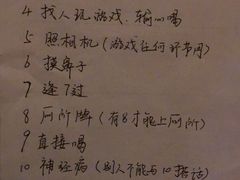 4 找人玩游戏、输心喝
5 照相机(游戏任何环节用)
6 摸鼻子
7 逢7过
8 厕所牌(有8才能上厕所)
9 直接喝
10 神经病(别人不能与10搭话)